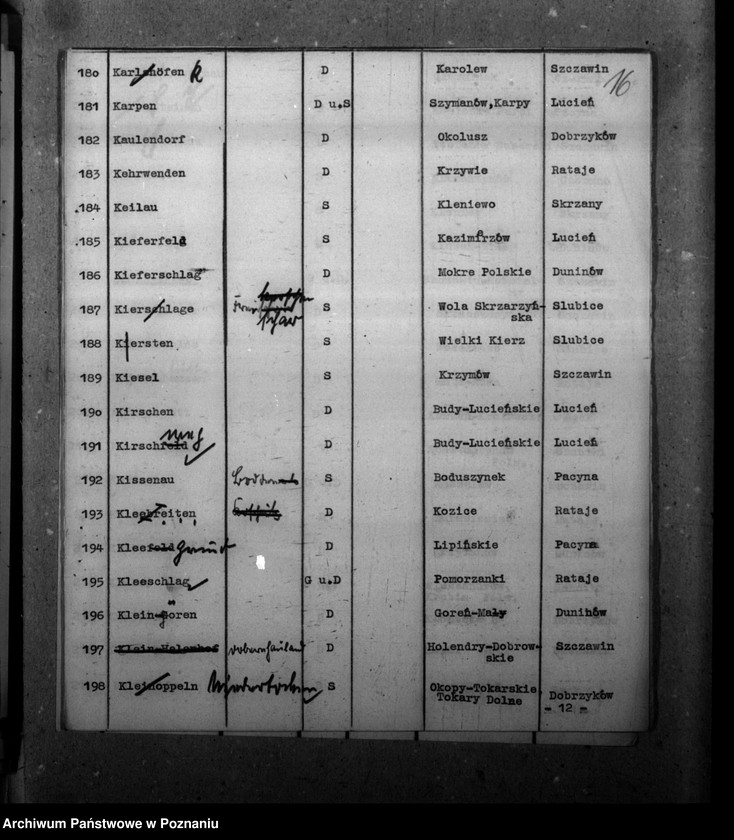 16
180 Karlshöfen k D Karolew Szczawin
181 Karpen D u.S Szymanów,Karpy Lucień
182 Kaulendorf D Okolusz Dobrzyków
183 Kehrwenden D Krzywie Rataje
184 Keilau S Kleniewo Skrzany
185 Kieferfeld S Kazimierzów Lucień
186 Kieferschlag D Mokre Polskie Duninów
187 Kierschlage S Wola Skrzarzyń- Slubice
ska
188 Kiersten S Wielki Kierz Slubice
189 Kiesel S Krzymów Szczawin
190 Kirschen D Budy-Lucieńskie Lucień
191 Kirschfeld D Budy-Lucieńskie Lucień
192 Kissenau S Boduszynek Pacyna
193 Kleebreiten D Kozice Rataje
194 Kleefeld Grund D Lipińskie Pacyna
195 Kleeschlag G u.D Pomorzanki Rataje
196 Klein-Gören D Goreń-Mały Duninów
197 D Holendry-Dobrow- Szczawin
skie
198 Kleinoppeln S Okopy-Tokarskie,
Tokary Dolne Dobrzyków
- 12 -
Archiwum Państwowe w Poznaniu